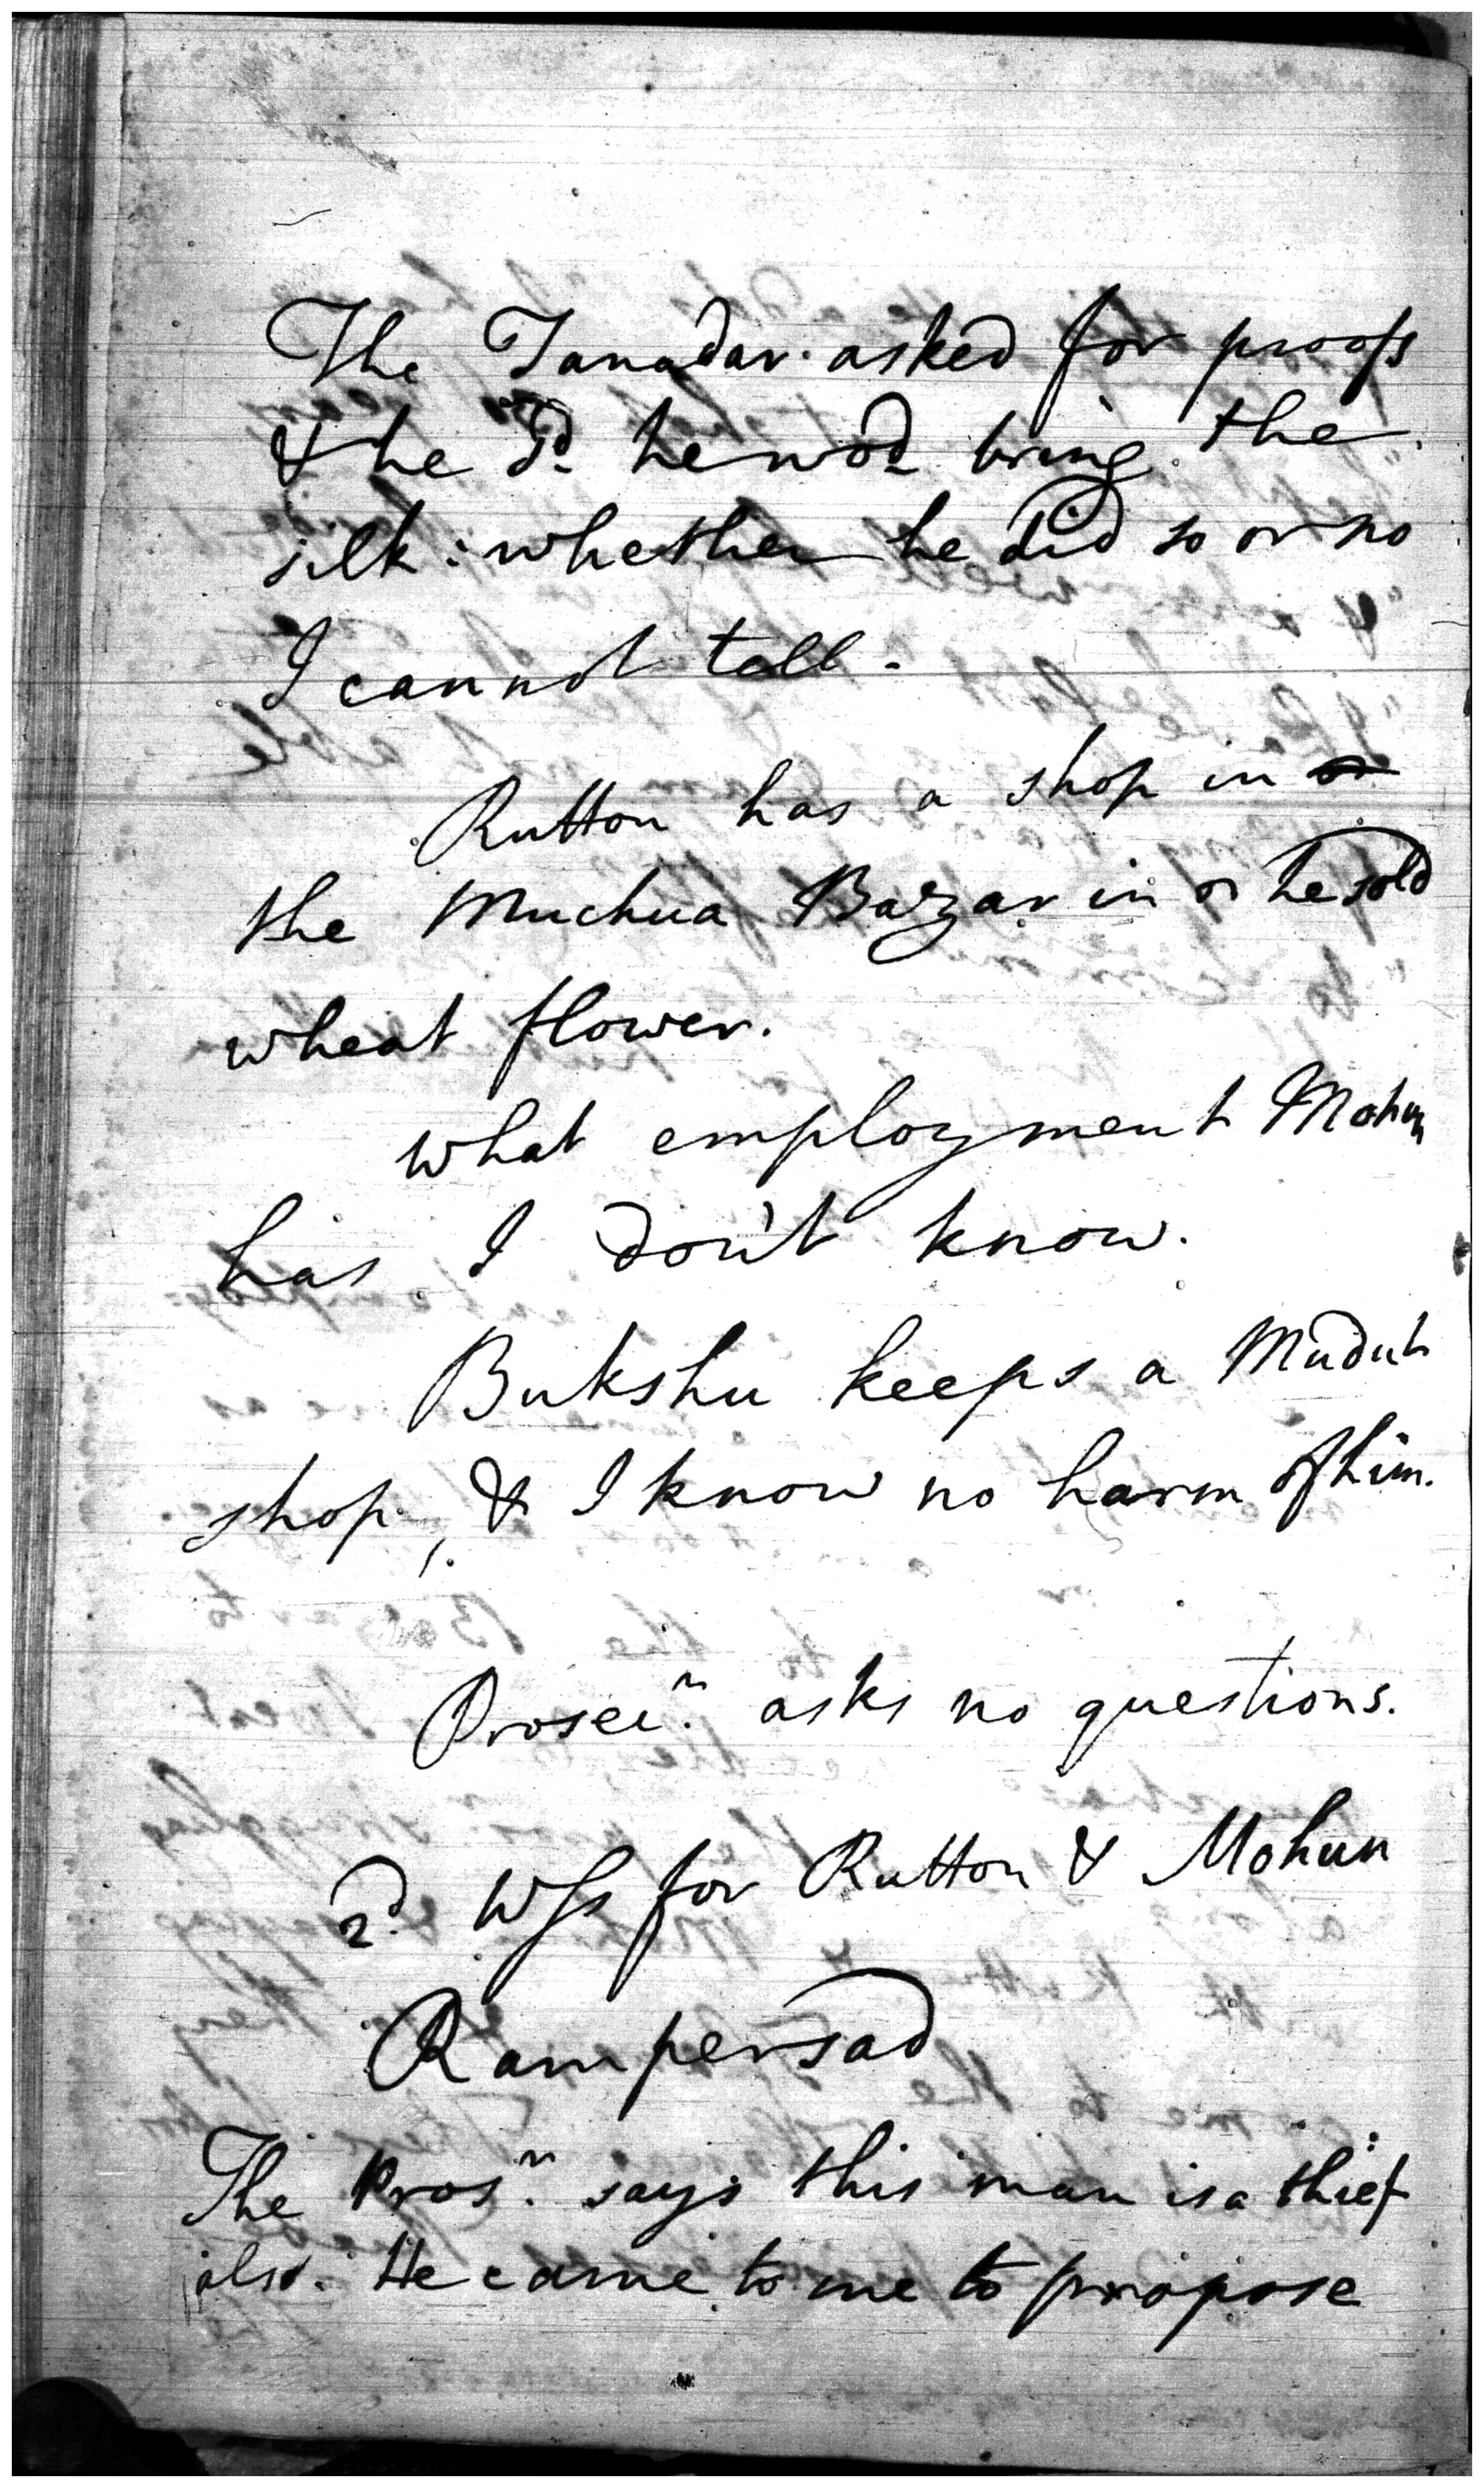 The Tanadar asked for proofs
& he sd. he wod bring the
silk: whether he did so or no
I cannot tell.
Rutton has a shop in
the Muchua Bazar in he sold
wheat flower.
what employment Mohun
has I don't know.
Bukshu keeps a
shop, & I know no harm of him.
asks no questions.
2d. Wss for Rutton & Mohun
Rampersad
The Prosr. says this man is a thief
also. He came to me to propose